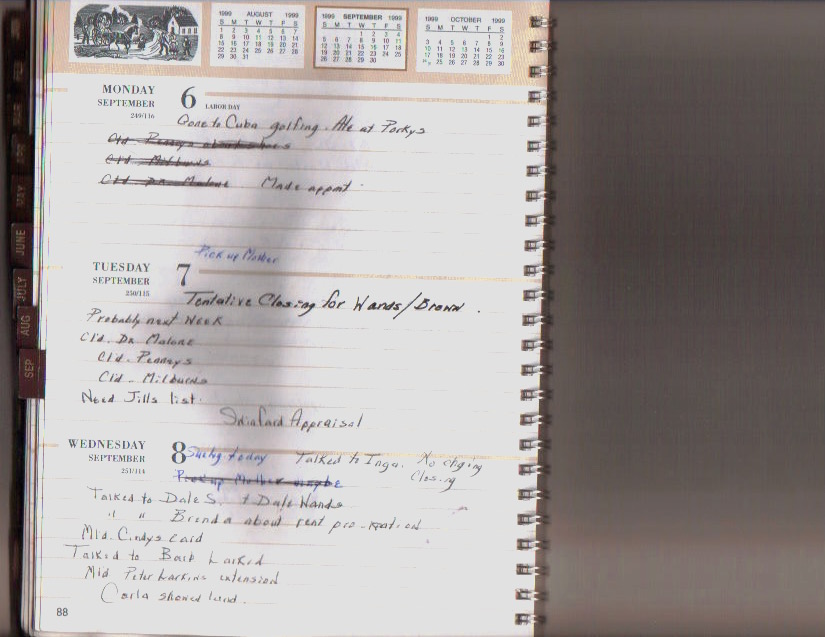 1999 AUGUST 1999
S M T W T F S
1 2 3 4 5 6 7
8 9 10 11 12 13 14
15 16 17 18 19 20 21
22 23 24 25 26 27 28
29 30 31
1999 SEPTEMBER 1999
S M T W T F S
1 2 3 4
5 6 7 8 9 10 11
12 13 14 15 16 17 18
19 20 21 22 23 24 25
26 27 28 29 30
1999 OCTOBER 1999
S M T W T F S
1 2
3 4 5 6 7 8 9
10 11 12 13 14 15 16
17 18 19 20 21 22 23
24 25 26 27 28 29 30
MONDAY 6
SEPTEMBER LABOR DAY
249/116
Gone to Cuba golfing. Ate at Porkys
Cld. Penneys
Cld Milburns
Cld Dr Malone Made appmt
Pick up Mother
TUESDAY 7
SEPTEMBER
250/115
Tentative Closing for Wands/Brown.
Probably next Week
Cld. Dr Malone
Cld. Penneys
Cld. Milburns
Need Jills list.
Appraisal
WEDNESDAY 8
SEPTEMBER
251/114
today Talked to Inga. No
Closing
Pick up Mother maybe
Talked to Dale S. + Dale Wands
" " Brenda about rent pro-ration
Mld. Cindys card
Talked to Barb
Mld Peter Larkins extension
Carla showed land.
88
MAY
JUNE
JULY
AUG
SEP